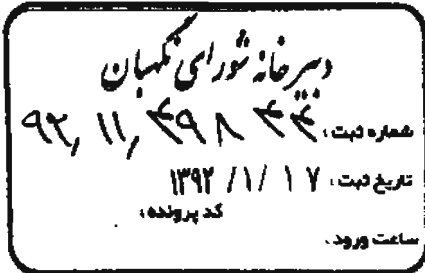 دبیرخانه شورای نگهبان
شماره ثبت:
تاریخ ثبت: ۱۳۹۲/۱/۱۷
کد پرونده:
ساعت ورود: